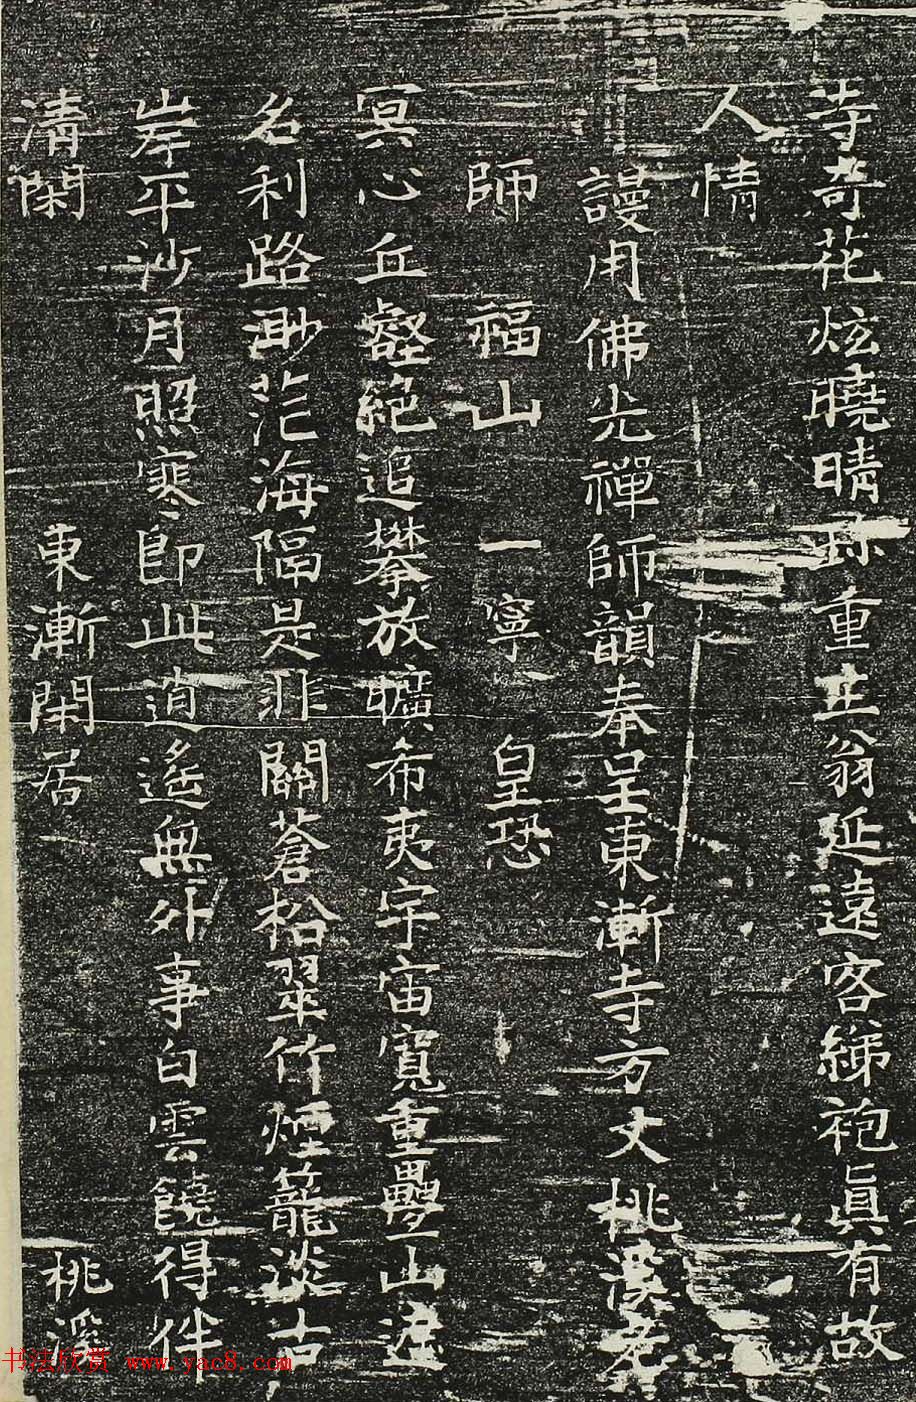 寺奇花炫曉晴珎重正翁延遠客綈袍真有故
人情
謾用佛光禪師韻奉呈東漸寺方丈桃溪老
師 福山 一寧 皇恐
冥心丘壑絕追攀放曠希夷宇宙寬重疊山遮
名利路渺茫海隔是非關蒼松翠竹煙籠淡古
岸平沙月照寒即此逍遙無外事白雲饒得伴
清閑 東漸閑居 桃溪
书法欣赏 www.yac8.com